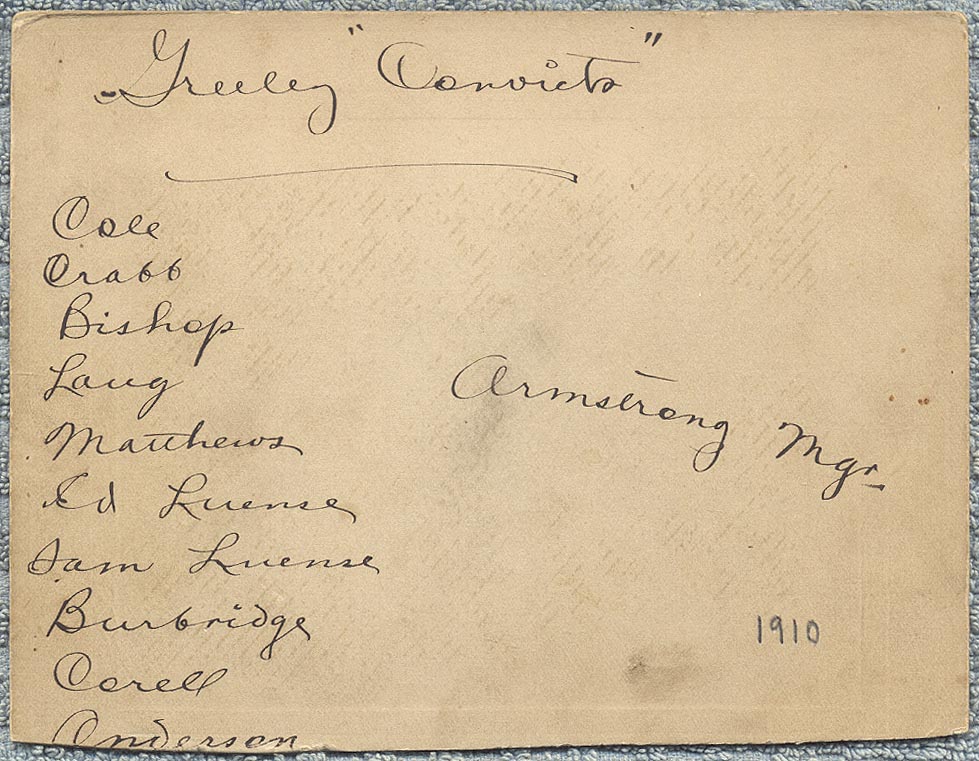 Greeley "Convicts"
Cole
Crabb
Bishop
Laug
Matthews
Ed Luense
Sam Luense
Burbridge
Corell
Anderson
Armstrong Mgr
1910